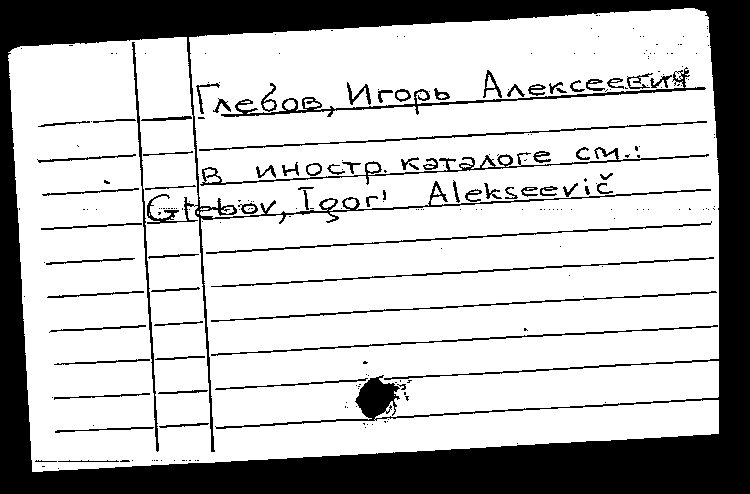 Глебов, Игорь Алексеевич
в иностр. каталоге см.:
Glebov, Igor' Alekseevič